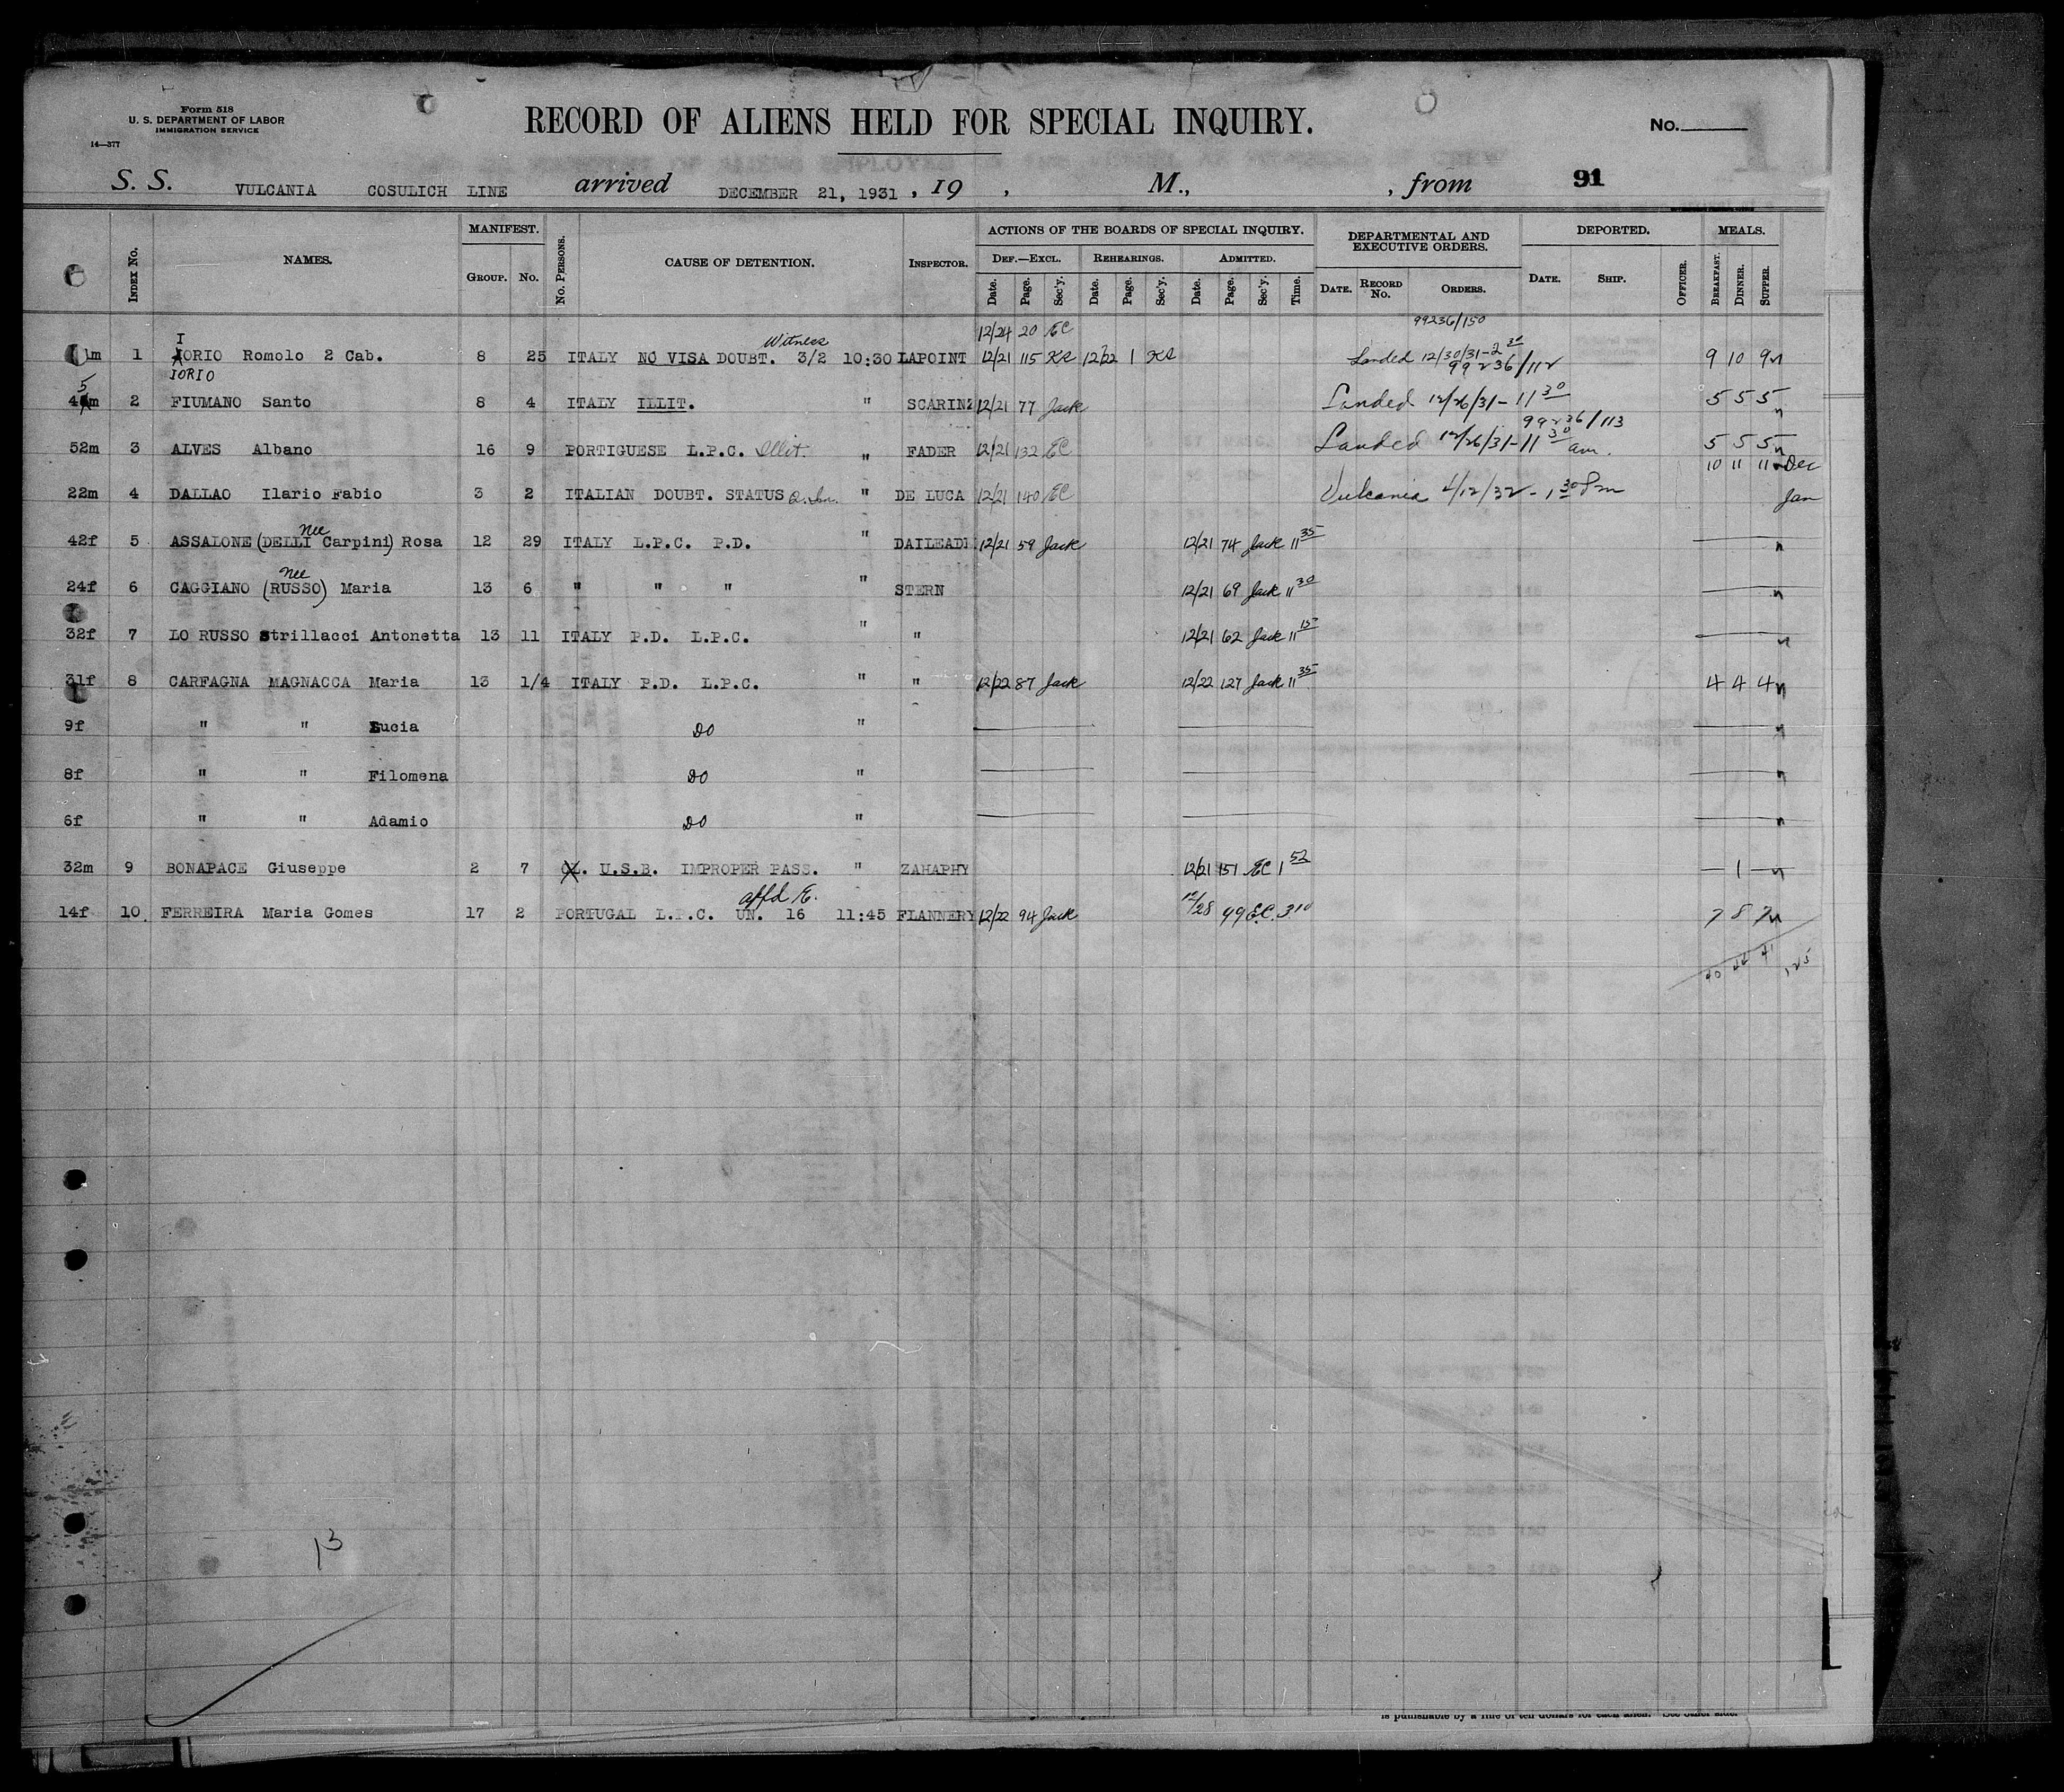 Form 518
U. S. DEPARTMENT OF LABOR
IMMIGRATION SERVICE
14—377
RECORD OF ALIENS HELD FOR SPECIAL INQUIRY.
No.
S. S. VULCANIA COSULICH LINE arrived DECEMBER 21, 1931 , 19 , M., , from 91
INDEX No. NAMES. MANIFEST. GROUP. No. No. PERSONS. CAUSE OF DETENTION. INSPECTOR. ACTIONS OF THE BOARDS OF SPECIAL INQUIRY. DEF.—EXCL. Date. Page. Sec'y. REHEARINGS. Date. Page. Sec'y. ADMITTED. Date. Page. Sec'y. Time. DEPARTMENTAL AND EXECUTIVE ORDERS. DATE. RECORD No. ORDERS. DEPORTED. DATE. SHIP. OFFICER. MEALS. BREAKFAST. DINNER. SUPPER.
I Witness 12/24 20 EC 99236/150
1m 1 IORIO Romolo 2 Cab. 8 25 ITALY NO VISA DOUBT. 3/2 10:30 LAPOINT 12/21 115 KS 12/22 1 KS Landed 12/30/31-2 30 9 10 9
IORIO 99236/112
5
4m 2 FIUMANO Santo 8 4 ITALY ILLIT. " SCARINZ 12/21 77 Jack Landed 12/26/31-11 30 5 5 5
99236/113
52m 3 ALVES Albano 16 9 PORTIGUESE L.P.C. Illit. " FADER 12/21 132 EC Landed 12/26/31-11 30 am. 5 5 5
10 11 11 Dec
22m 4 DALLAO Ilario Fabio 3 2 ITALIAN DOUBT. STATUS " DE LUCA 12/21 140 EC Vulcania 1/12/32-1 30 Pm Jan
nee
42f 5 ASSALONE (DELLI Carpini) Rosa 12 29 ITALY L.P.C. P.D. " DAILEADE 12/21 59 Jack 12/21 74 Jack 11 35
nee
24f 6 CAGGIANO (RUSSO) Maria 13 6 " " " " STERN 12/21 69 Jack 11 30
32f 7 LO RUSSO Strillacci Antonetta 13 11 ITALY P.D. L.P.C. " " 12/21 62 Jack 11 15
31f 8 CARFAGNA MAGNACCA Maria 13 1/4 ITALY P.D. L.P.C. " " 12/22 87 Jack 12/22 127 Jack 11 35 4 4 4
9f " " Lucia DO "
8f " " Filomena DO "
6f " " Adamio DO "
32m 9 BONAPACE Giuseppe 2 7 U.S.B. IMPROPER PASS. " ZAHAPHY 12/21 151 EC 1 52 — 1 —
affd
14f 10. FERREIRA Maria Gomes 17 2 PORTUGAL L.P.C. UN. 16 11:45 FLANNERY 12/22 94 Jack 12/28 99 E.C. 3 10 7 8 7
40 44 41 125
13
is punishable by a fine of ten dollars for each alien. See other side.